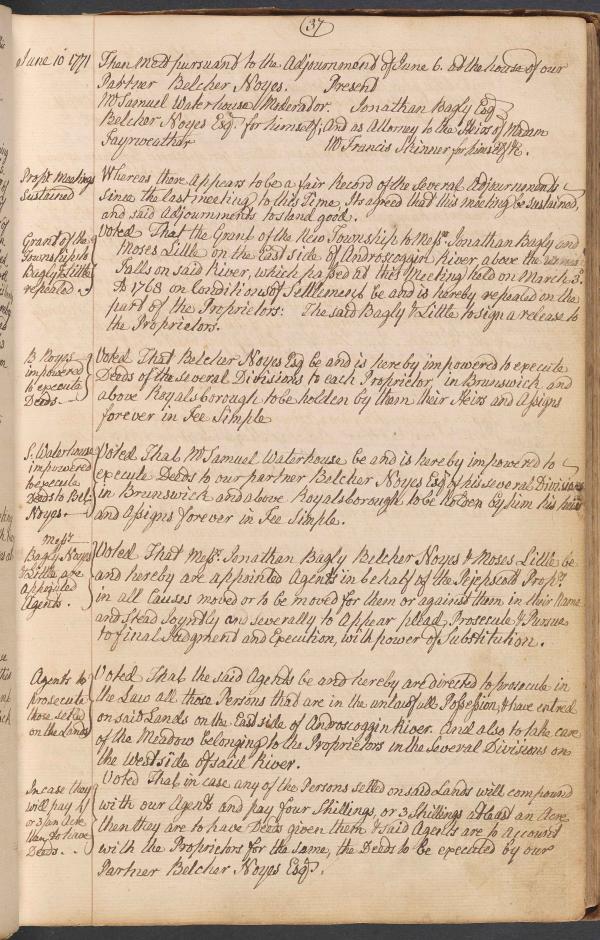 37
June 10 1771
Then mett pursuant to the Adjournment of June 6. at the house of our
Partner Belcher Noyes. Present
Mr Samuel Waterhouse Moderator. Jonathan Bagly Esqr
Belcher Noyes Esqr. for himself, And as Attorney to the Heirs of Madam
Fayrweather Mr Francis Skinner for himself &c.
Propt Meetings
Sustained
Whereas there Appears to be a fair Record of the Several Adjournments
since the last meeting to this Time, Its agreed that this meeting be sustained,
and said Adjournments to stand good.
Grant of the
Township to
Bagly & Little
repealed
Voted That the Grant of the New Township to Messrs. Jonathan Bagly and
Moses Little on the East side of Androscoggin River above the
Falls on said River, which passed at this Meeting held on March 3d
1768 on Conditions of Settlement, be and is hereby repealed on the
part of the Proprietors: The said Bagly & Little to sign a release to
the Proprietors.
B Noyes
impowered
to execute
Deeds.
Voted That Belcher Noyes Esq be and is hereby impowered to execute
Deeds of the several Divisions to each Proprietor, in Brunswick and
above Royalsborough to be holden by them their Heirs and Assigns
forever in Fee Simple
S. Waterhouse
impowered
to execute
Deeds to Bel.
Noyes.
Voted That Mr Samuel Waterhouse be and is hereby impowered to
execute Deeds to our partner Belcher Noyes Esqr of his Several Divisions
in Brunswick and above Royalsborough to be holden by him his heirs
and Assigns forever in Fee Simple.
Messrs
Bagly Noyes
& Little are
appointed
Agents.
Voted That Messrs. Jonathan Bagly Belcher Noyes & Moses Little be
and hereby are appointed Agents in behalf of the Pejepscott Proprs
in all Causes moved or to be moved for them or against them in their Name
and Stead Joyntly and severally to Appear plead, Prosecute & Pursue
to final Judgment and Execution, with power of Substitution.
Agents to
prosecute
those settled
on the Lands
Voted That the said Agents be and hereby are directed to prosecute in
the Law all those Persons that are in the unlawfull Possession, & have entred
on said Lands on the East side of Androscoggin River. And also to take care
of the Meadow belonging to the Proprietors in the Several Divisions on
the West side of said River.
In case they
will pay 4/
or 3/ an Acre
then to have
Deeds.
Voted That in case any of the Persons settled on said Lands will compound
with our Agents and pay four Shillings, or 3 Shillings at least an Acre
then they are to have Deeds given them & said Agents are to Account
with the Proprietors for the same, the Deeds to be executed by our
Partner Belcher Noyes Esqr.